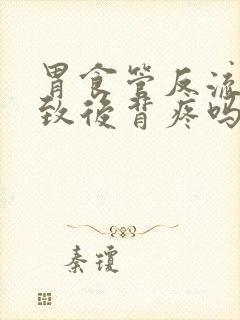 胃食管反流
致後背疼吗
秦琼